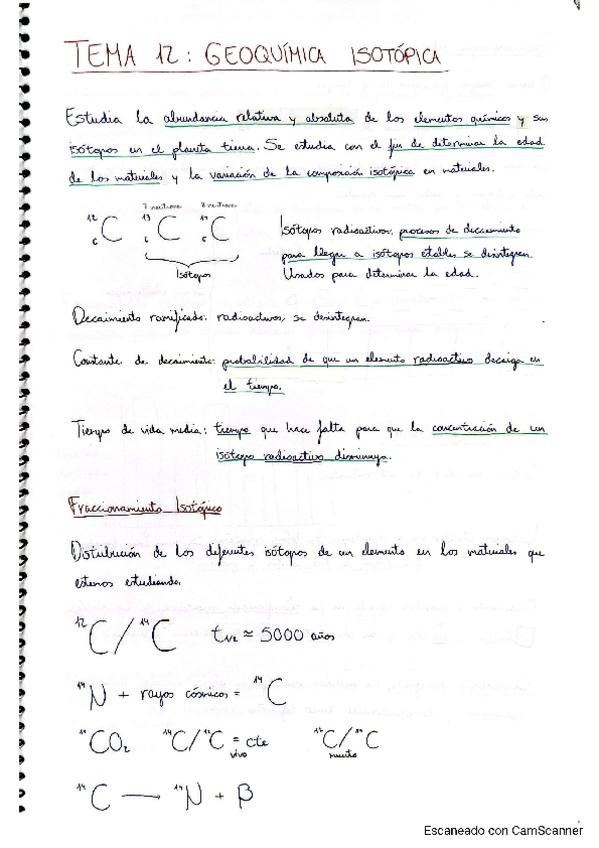 TEMA 12: GEOQUÍMICA ISOTÓPICA
Estudia la abundancia relativa y absoluta de los elementos químicos y sus
isótopos en el planeta tierra. Se estudia con el fin de determinar la edad
de los materiales y la variación de la composición isotópica en materiales.
7 neutrones 8 neutrones
¹²₆C ¹³₆C ¹⁴₆C
Isótopos
Isótopos radioactivos: procesos de decaimiento
para llegar a isótopos estables se desintegran.
Usados para determinar la edad.
Decaimiento ramificado: radioactivos, se desintegran.
Constante de decaimiento: probabilidad de que un elemento radioactivo decaiga en
el tiempo.
Tiempo de vida media: tiempo que hace falta para que la concentración de un
isótopo radioactivo disminuya.
Fraccionamiento Isotópico
Distribución de los diferentes isótopos de un elemento en los materiales que
estemos estudiando.
¹²C/¹⁴C t₁/₂ ≈ 5000 años
¹⁴N + rayos cósmicos = ¹⁴C
CO₂ C/C = cte C/C
vivo muerto
¹⁴C → ¹⁴N + β
Escaneado con CamScanner